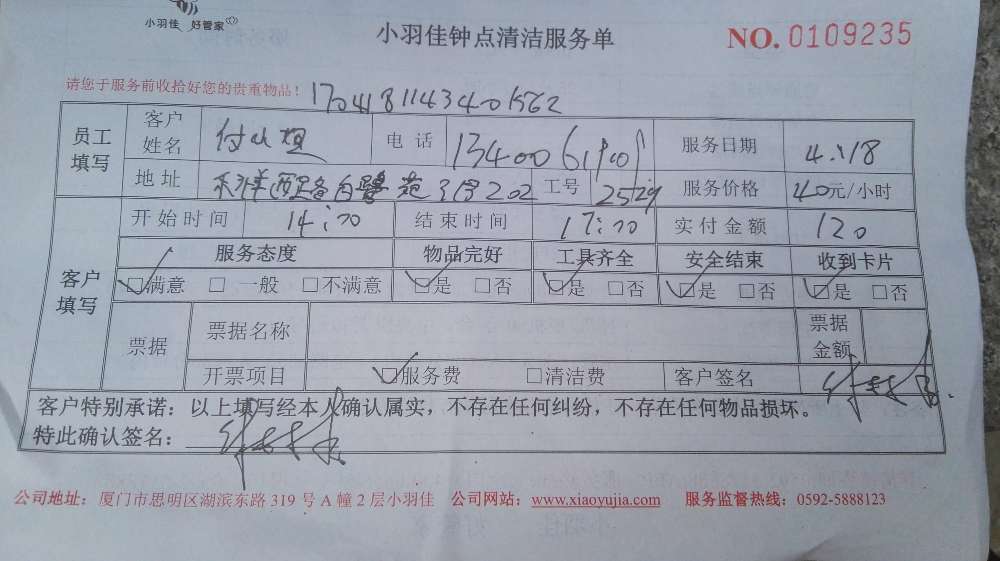 小羽佳 好管家
小羽佳钟点清洁服务单
NO. 0109235
请您于服务前收拾好您的贵重物品!
员工填写 客户姓名 电话 服务日期 4.18
地址 工号 服务价格 40元/小时
开始时间 14:00 结束时间 17:00 实付金额 120
客户填写 服务态度 物品完好 工具齐全 安全结束 收到卡片
满意 一般 不满意 是 否 是 否 是 否 是 否
票据 票据名称 票据金额
开票项目 服务费 清洁费 客户签名
客户特别承诺:以上填写经本人确认属实,不存在任何纠纷,不存在任何物品损坏。
特此确认签名:
公司地址:厦门市思明区湖滨东路319号A幢2层小羽佳 公司网站:www.xiaoyujia.com 服务监督热线:0592-5888123